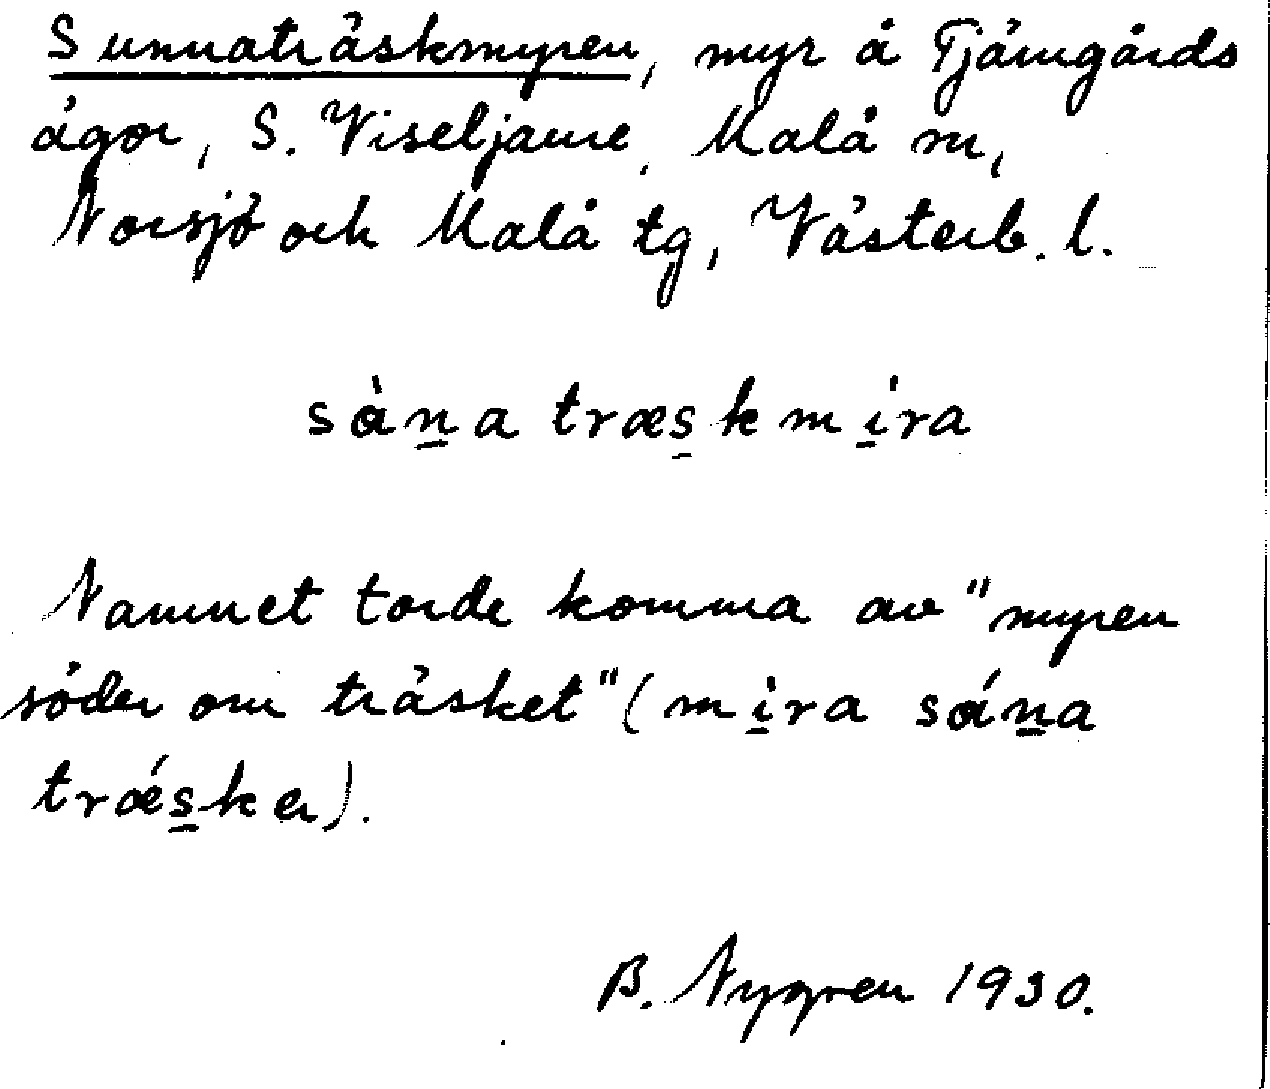 Sunnaträskmyren, myr å Tjärngårds
ägor, S. Viseljaure, Malå sn,
Norsjö och Malå tg, Västerb. l.
sàn̲a træs̲kmi̲ra
Namnet torde komma av "myren
söder om träsket" (mi̲ra sán̲a
trǽs̲kə).
B. Nygren 1930.